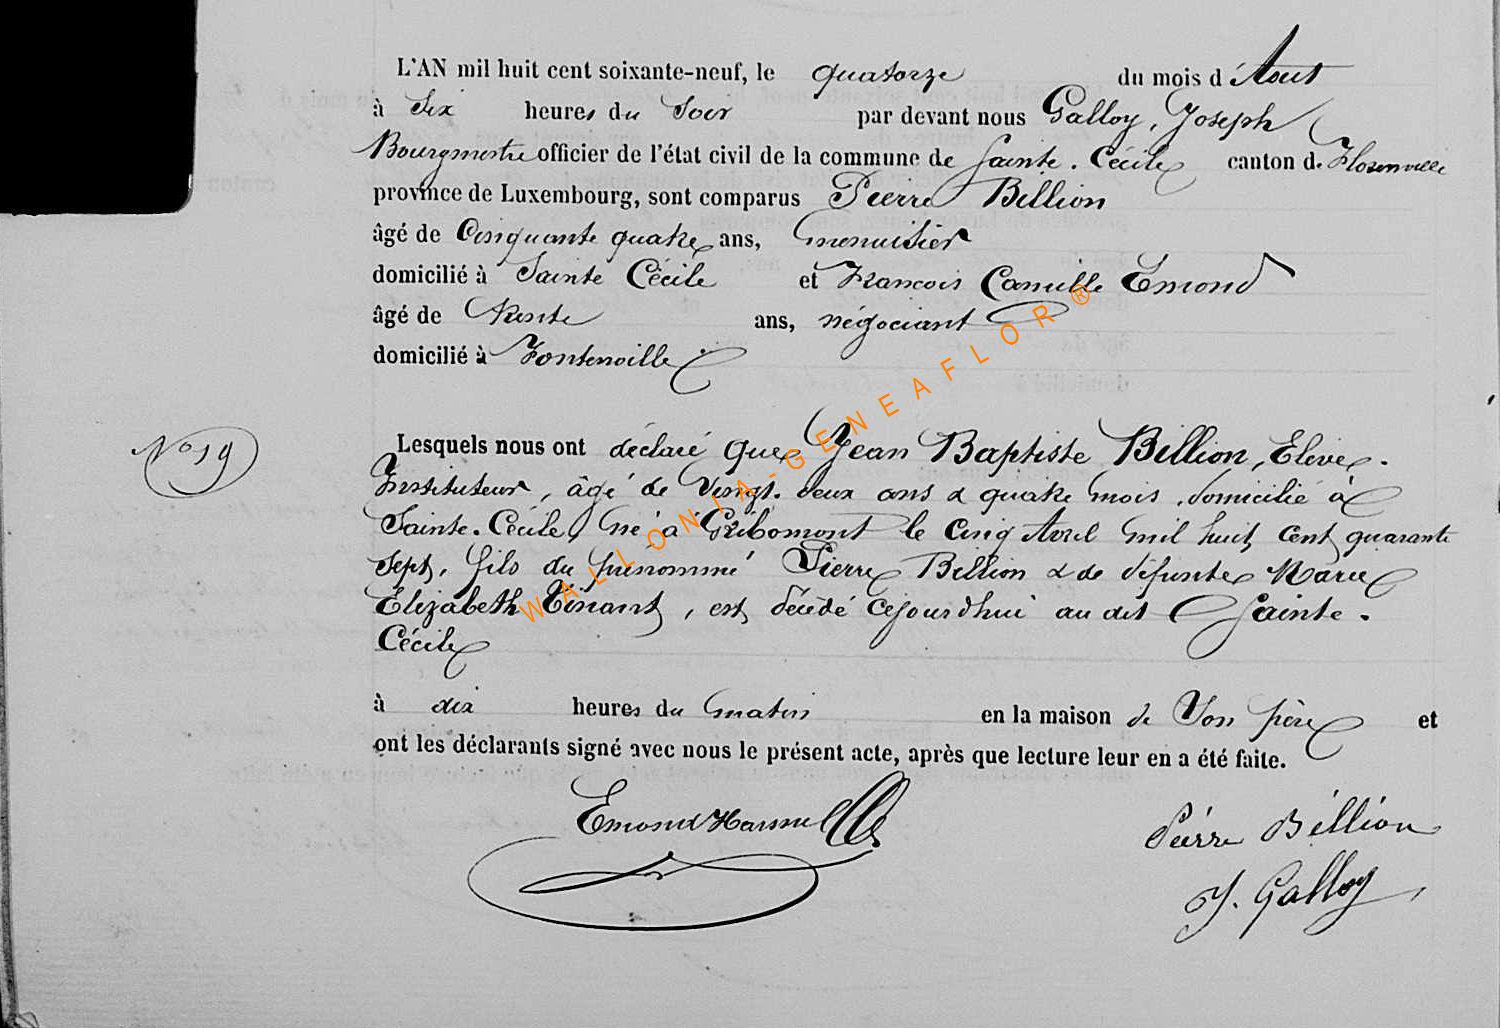 L'AN mil huit cent soixante-neuf, le quatorze du mois d'Aout
à Six heures du Soir par devant nous Galloy, Joseph
Bourgmestre officier de l'état civil de la commune de Sainte-Cécile canton de Florenville
province de Luxembourg, sont comparus Pierre Billion
âgé de Cinquante quatre ans, menuisier
domicilié à Sainte Cécile et Francois Camille Emond
âgé de trente ans, négociant
domicilié à Fontenoille
N° 19
Lesquels nous ont déclaré que Jean Baptiste Billion, Elève-
Instituteur, âgé de Vingt-deux ans & quatre mois, domicilié à
Sainte-Cécile, né à Gribomont le Cinq Avril mil huit Cent quarante
sept, fils du prénommé Pierre Billion & de défunte Marie
Elizabeth Tinant, est décédé cejourd'hui au dit Sainte-
Cécile
à dix heures du matin en la maison de Son père et
ont les déclarants signé avec nous le présent acte, après que lecture leur en a été faite.
Emond Pierre Billion
J. Galloy
WALLONIA-GENEAFLOR®